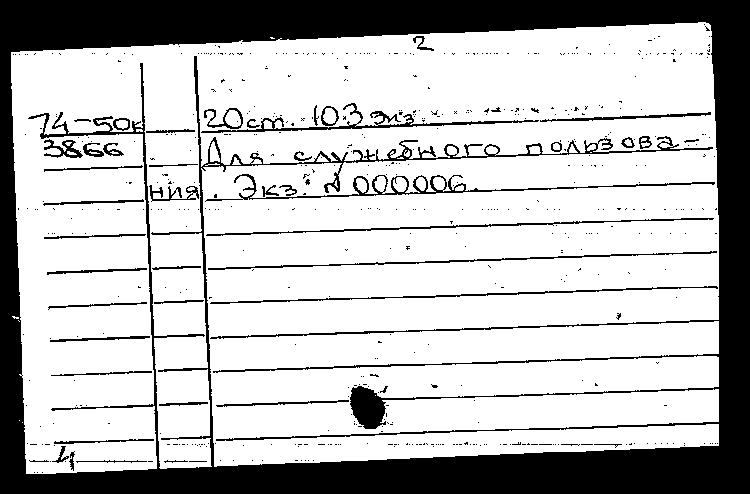 2
74-50к 20ст. 103 экз.
3866 Для служебного пользова-
ния. Экз. № 000006.
4